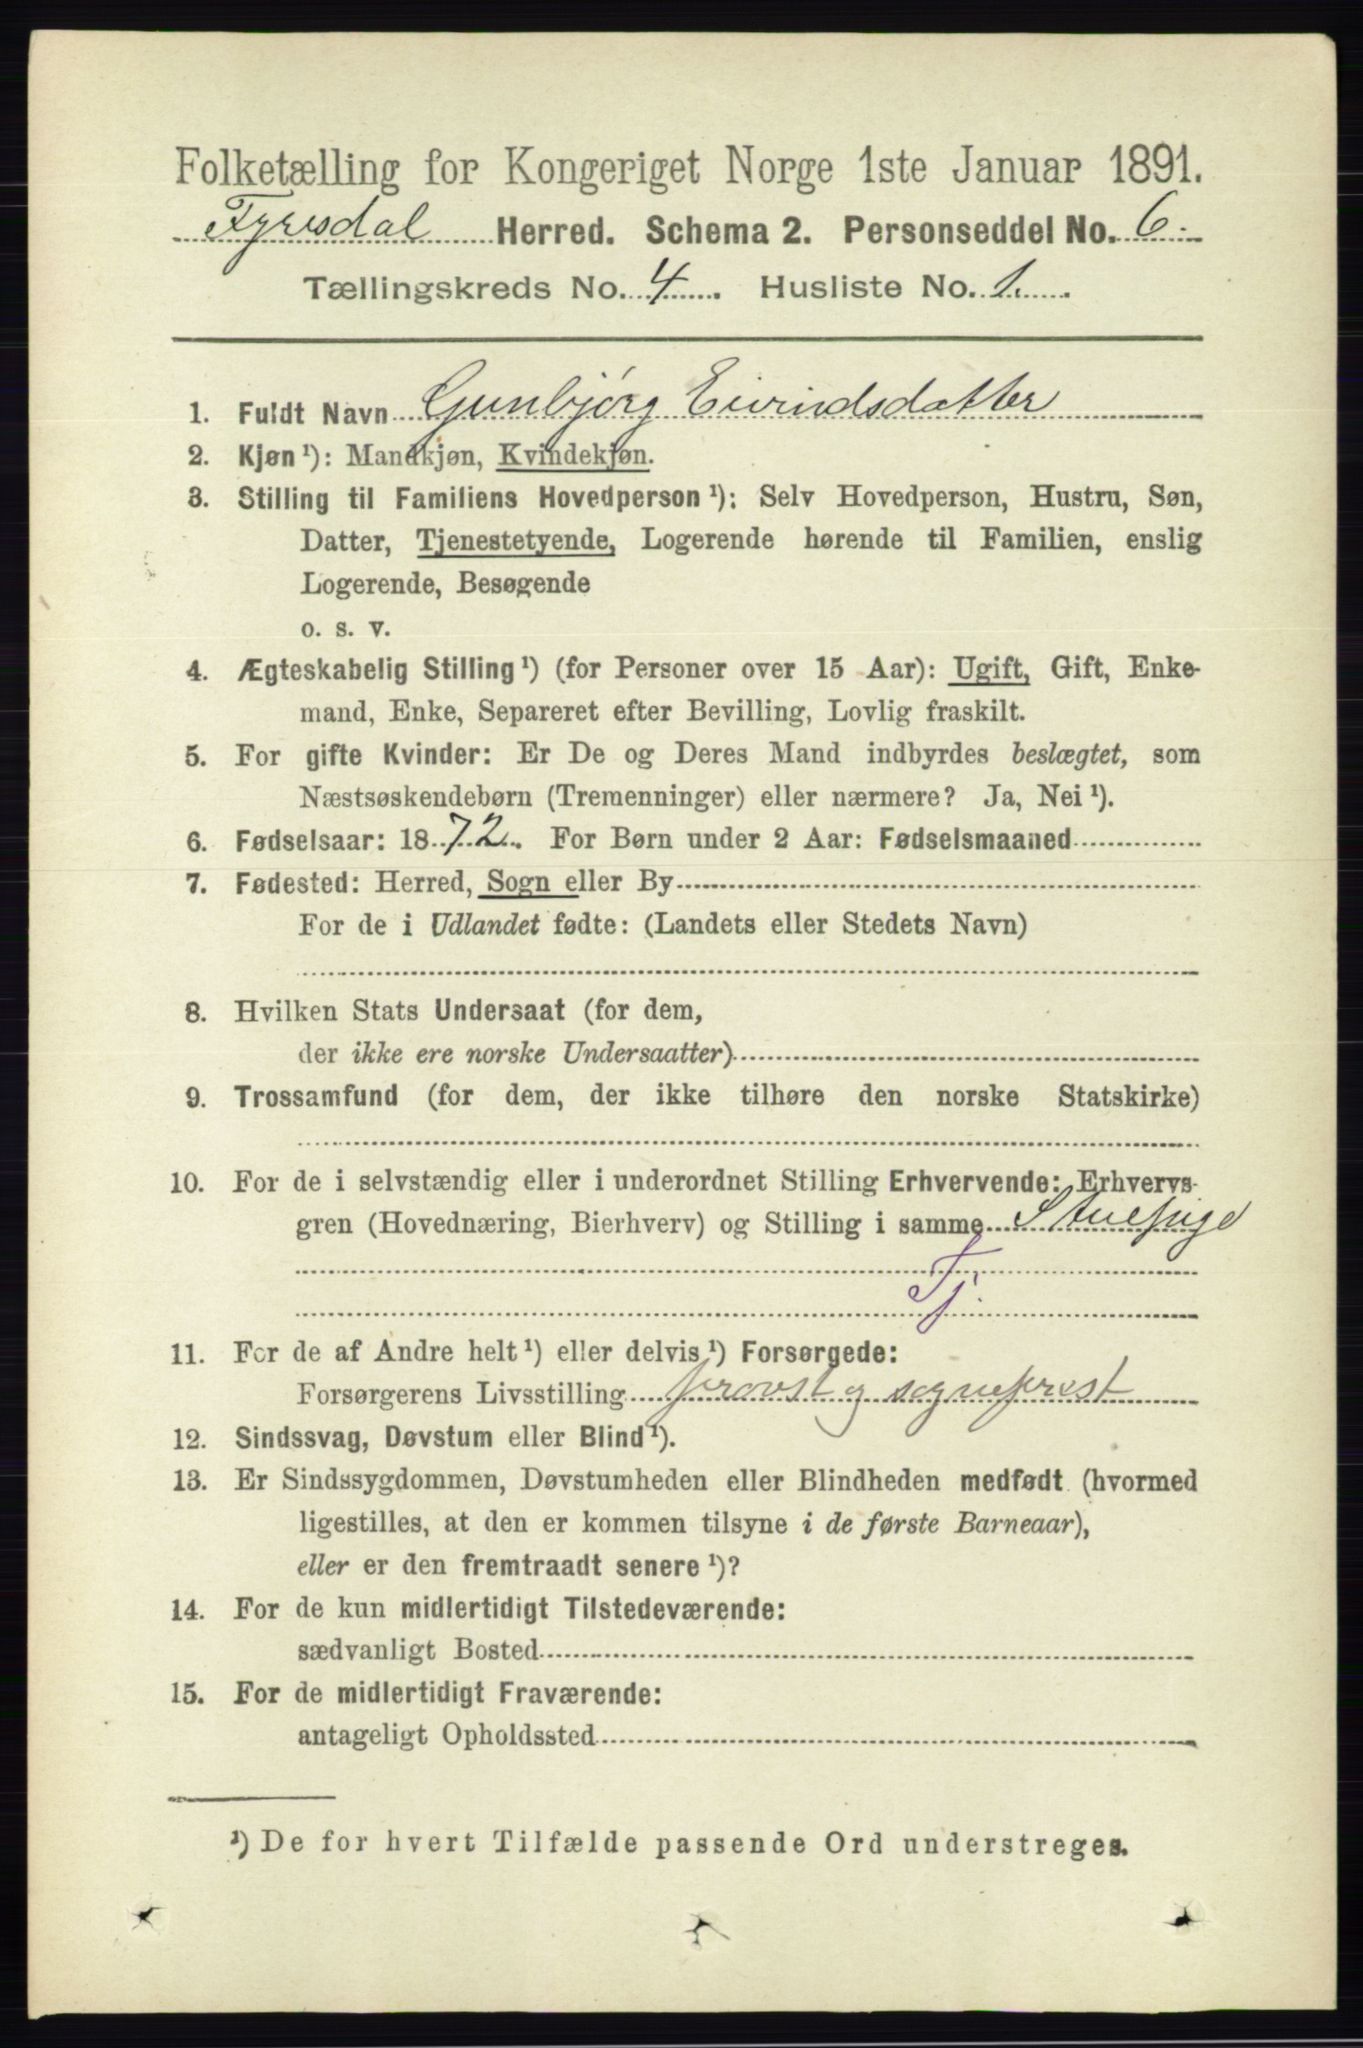 Folketælling for Kongeriget Norge 1ste Januar 1891.
Fyresdal Herred. Schema 2. Personseddel No. 6.
Tællingskreds No. 4. Husliste No. 1.
1. Fuldt Navn Gunbjørg Eivindsdatter
2. Kjøn ¹): Mandkjøn, Kvindekjøn.
3. Stilling til Familiens Hovedperson ¹): Selv Hovedperson, Hustru, Søn,
Datter, Tjenestetyende, Logerende hørende til Familien, enslig
Logerende, Besøgende
o. s. v.
4. Ægteskabelig Stilling ¹) (for Personer over 15 Aar): Ugift, Gift, Enke-
mand, Enke, Separeret efter Bevilling, Lovlig fraskilt.
5. For gifte Kvinder: Er De og Deres Mand indbyrdes beslægtet, som
Næstsøskendebørn (Tremenninger) eller nærmere? Ja, Nei ¹).
6. Fødselsaar: 1872. For Børn under 2 Aar: Fødselsmaaned
7. Fødested: Herred, Sogn eller By
For de i Udlandet fødte: (Landets eller Stedets Navn)
8. Hvilken Stats Undersaat (for dem,
der ikke ere norske Undersaatter)
9. Trossamfund (for dem, der ikke tilhøre den norske Statskirke)
10. For de i selvstændig eller i underordnet Stilling Erhvervende: Erhvervs-
gren (Hovednæring, Bierhverv) og Stilling i samme Stuepige
Tj.
11. For de af Andre helt ¹) eller delvis ¹) Forsørgede:
Forsørgerens Livsstilling provst og sogneprest
12. Sindssvag, Døvstum eller Blind ¹).
13. Er Sindssygdommen, Døvstumheden eller Blindheden medfødt (hvormed
ligestilles, at den er kommen tilsyne i de første Barneaar),
eller er den fremtraadt senere ¹)?
14. For de kun midlertidigt Tilstedeværende:
sædvanligt Bosted
15. For de midlertidigt Fraværende:
antageligt Opholdssted
¹) De for hvert Tilfælde passende Ord understreges.